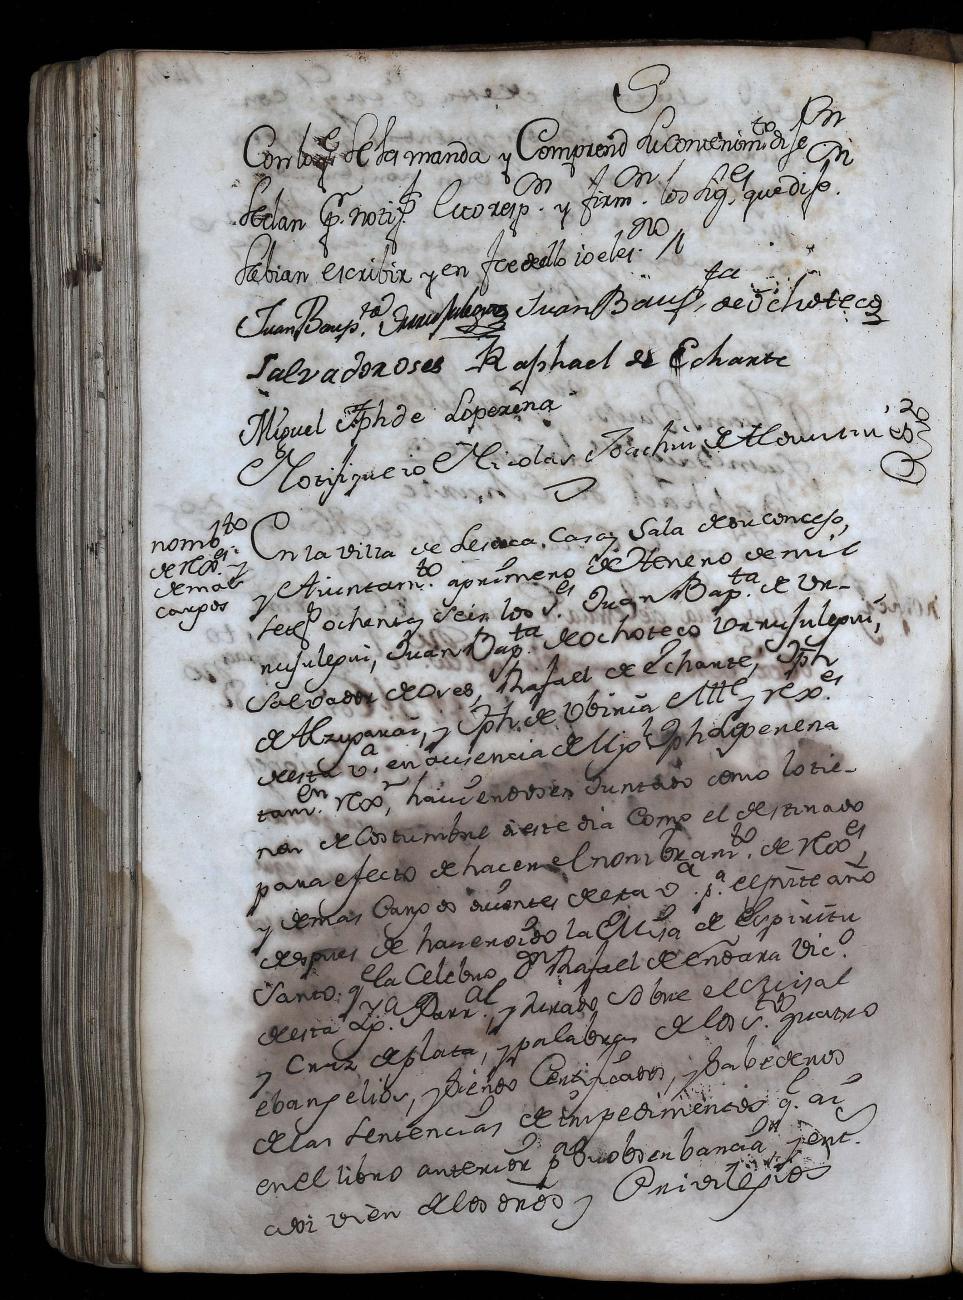 Con lo q.e se les manda y Comprend su contenim.to dijer.n
se dan p.r notif.s Esto resp.n y firm.n los sig.es que dijer.n
sabian escribir y en fee de ello io el es.no
Juan Baup.ta Juan Baup.ta de ochoteco
Salvador oses Raphael de Echarte
Miguel Jph de Loperena
Notifiquelo Nicolas Joachin de
nomb.to
de rex.es y
demas
cargos
En la villa de Lesaca, Casa y Sala de su concejo,
y Aiuntam.to a primero de Henero de mil
setez.s ochenta y seis los S.es Juan Bap.ta de Ur-
rusulegui, Juan Bap.ta de ochoteco Urrusulegui,
Salvador de Oses, Rafael de Echarte, Jph
de Alzuguarai, y Jph. de Ubiria Alld.e y rex.es
de esta v.a, en ausencia de Mig.l Jph Loperena
tam.en rex.r, haviendose Juntado como lo tie-
nen de Costumbre deste dia como el destinado
para efecto de hacer el nombram.to de rex.es
y demas Cargos duentes de esta v.a p.a el pnte año
despues de haver oido la Misa de Espiritu
Santo, q.e la Celebro Dn Rafael de Endara Vic.o
de esta Yg.a Parr.al, y Jurado sobre el Misal
y Cruz de plata, y palabras de los S.tos quatro
ebangelios, y siendo Certificados, y Sabedores
de las Sentencias de impedimentos q.e ai
en el libro anterior p.r su obserbancia, y ent.
asi bien de los ordes y Privilejios